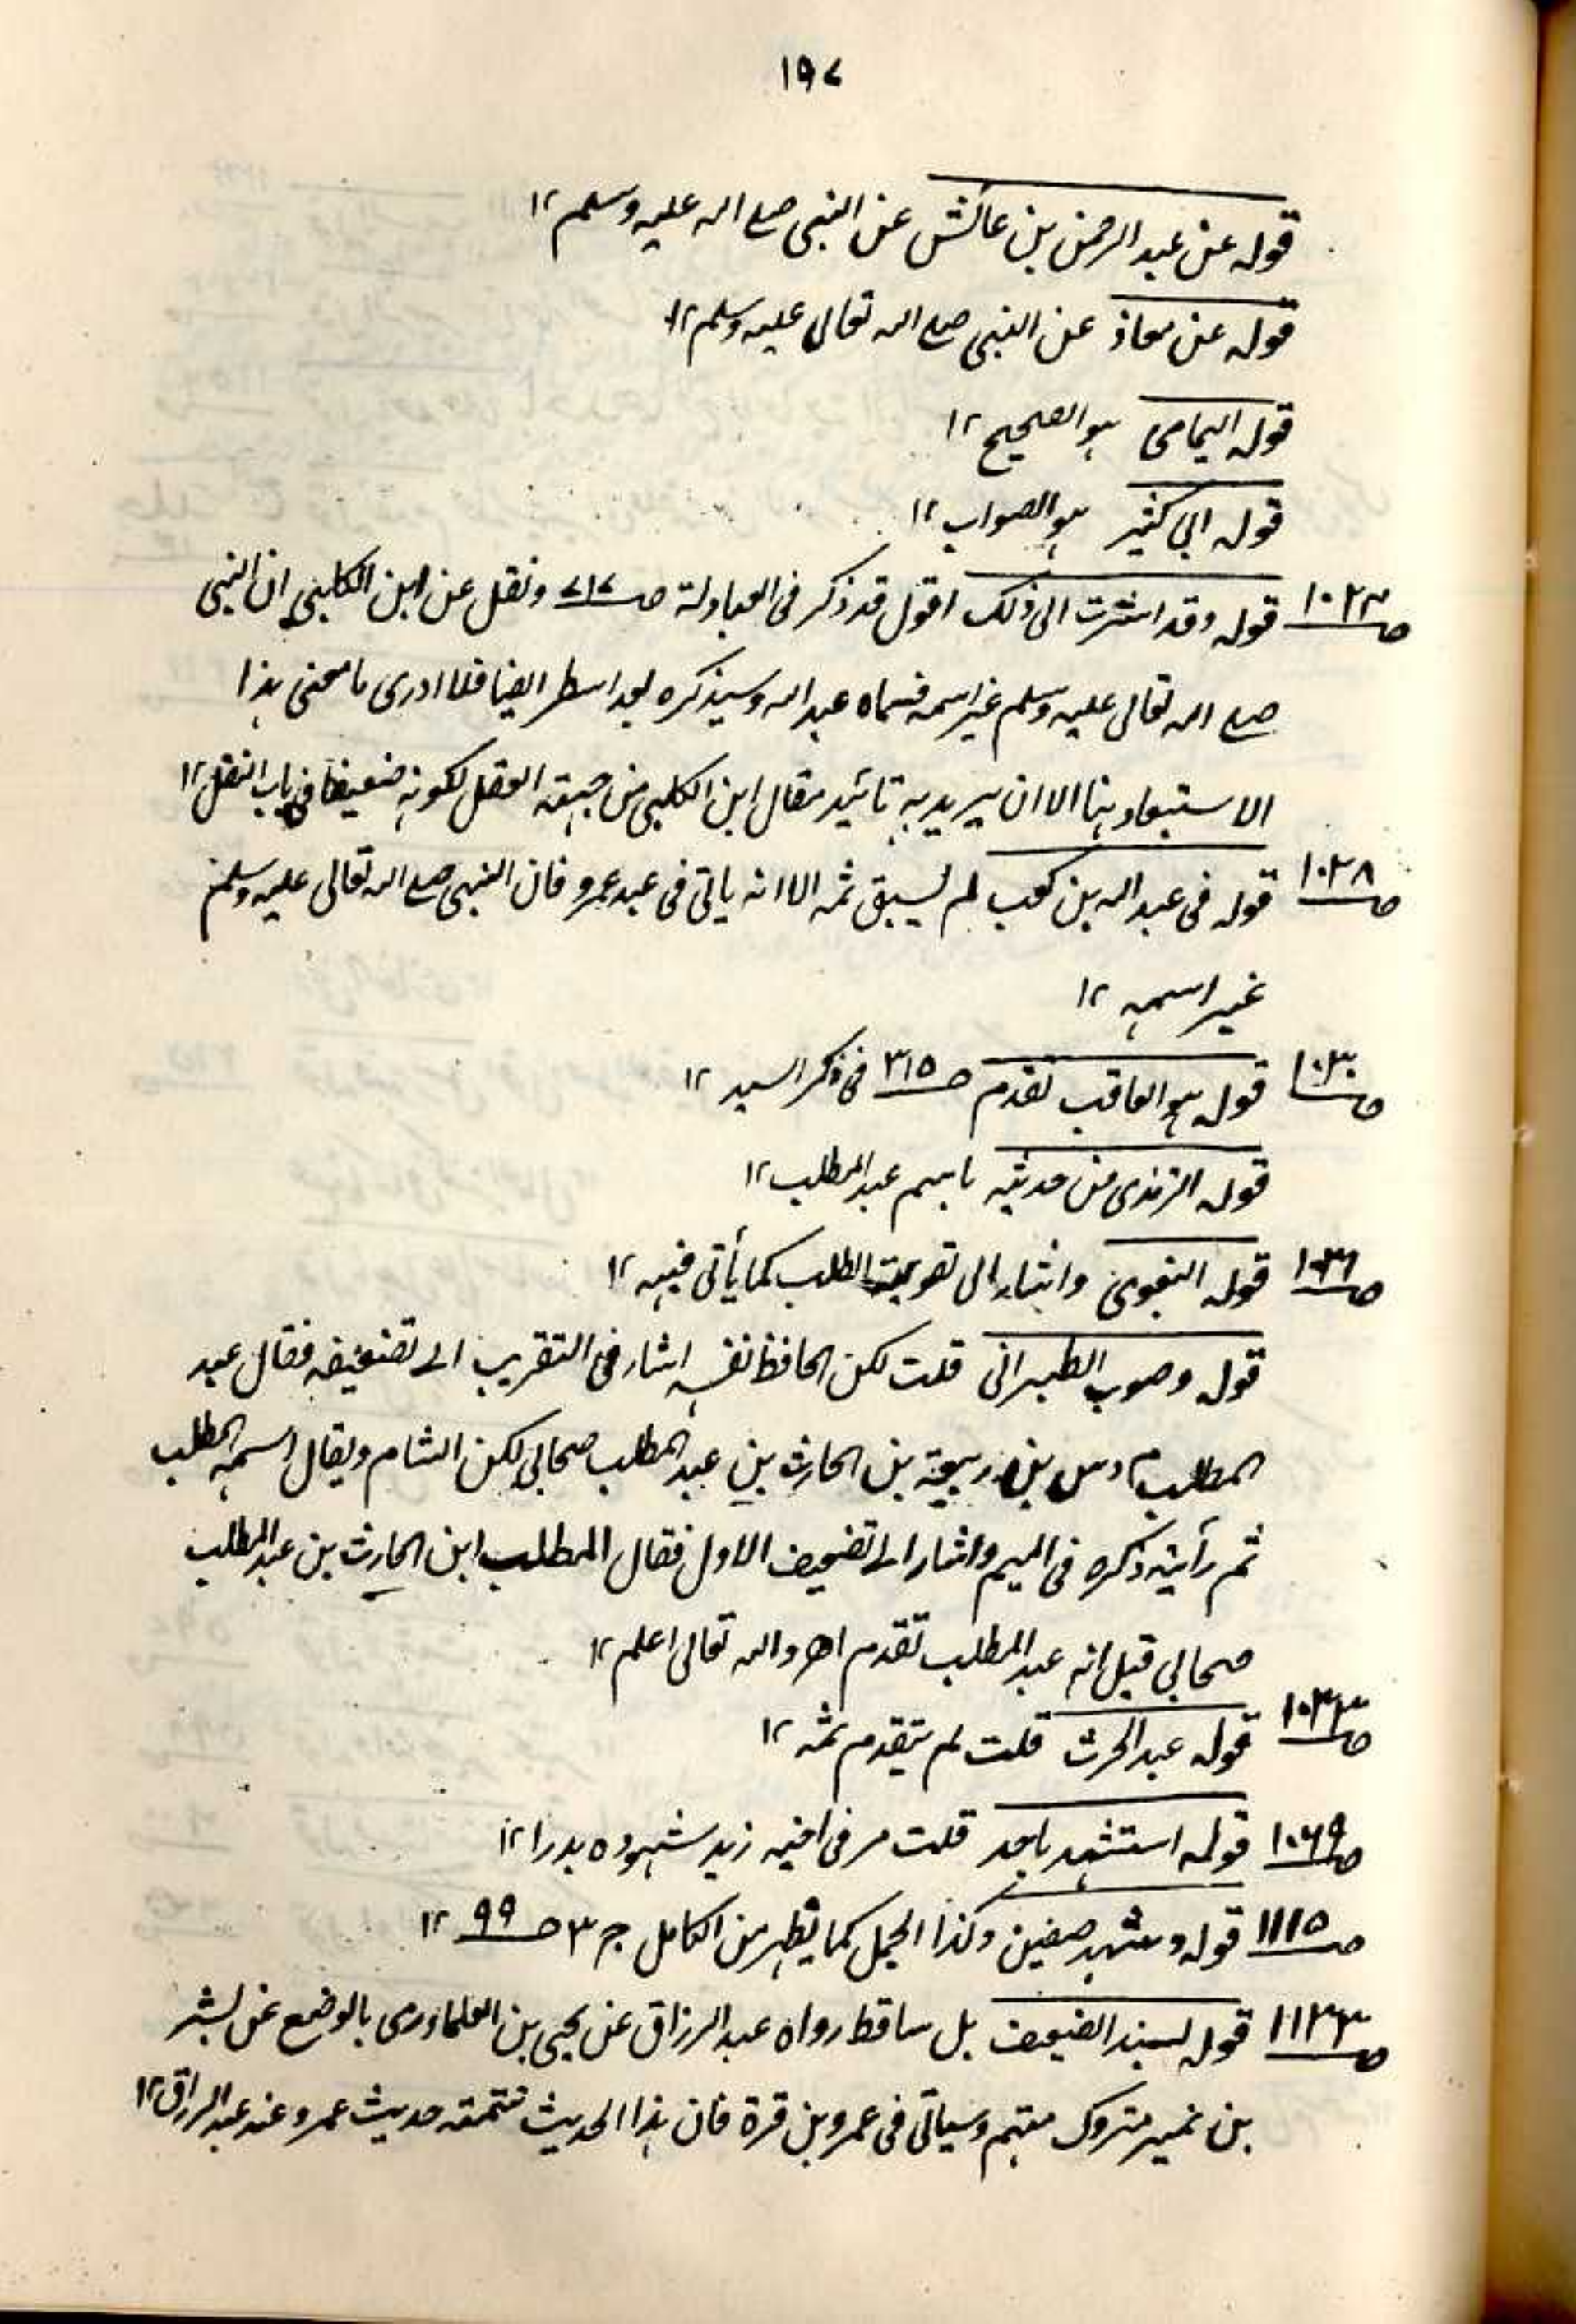 ١٩٧
قوله عن عبد الرحمن بن عائش عن النبي صلے الله عليه وسلم ١٢
قوله عن معاذ عن النبي صلے الله تعالى عليه وسلم ١٢
قوله اليمامى هو الصحيح ١٢
قوله ابي كثير هو الصواب ١٢
قوله وقد اشرت الى ذلك اقول قد ذكر فى العبادلة صـ ٧١٧ ونقل عن ابن الكلبى ان النبى
صلے الله تعالى عليه وسلم غير اسمه فسماه عبد الله وسيذكره بعد اسطر ايضا فلا ادرى ما معنى هذا
الاستبعاد هنا الا ان يريد به تائيد مقال ابن الكلبى من جهة العقل لكونه ضعيفا فى باب النقل ١٢
صـ ١٠٢٨ قوله فى عبد الله بن كعب لم يسبق ثمه الا انه ياتى فى عبد عمرو فان النبى صلے الله تعالى عليه وسلم
غير اسمه ١٢
صـ ١٠٣٠ قوله هو العاقب تقدم صـ ٣١٥ فى ذكر السيد ١٢
قوله الترمذى من حديثه باسم عبد المطلب ١٢
صـ ١٠٣١ قوله البغوى واشار الى تقوية المطلب كما يأتى فيه ١٢
قوله وصوب الطبرانى قلت لكن الحافظ نفسه اشار فى التقريب الے تضعيفه فقال عبد
المطلب بن ربيعة بن الحارث بن عبد المطلب صحابى سكن الشام ويقال اسمه المطلب
ثم رأيته ذكره فى الميم واشار الے تضعيف الاول فقال المطلب ابن الحارث بن عبد المطلب
صحابي قيل انه عبد المطلب تقدم اھ والله تعالى اعلم ١٢
قوله عبد الحرث قلت لم يتقدم ثمه ١٢
صـ ١٠٦٩ قوله استشهد باحد قلت مر فى اخيه زيد شهوده بدرا ١٢
صـ ١١١٥ قوله وشهد صفين وكذا الجمل كما يظهر من الكامل جـ ٣ صـ ٩٩ ١٢
قوله بسند ضعيف بل ساقط رواه عبد الرزاق عن يحيى بن العلا ورمى بالوضع عن بشر
بن نمير متروك متهم وسياتى فى عمرو بن قرة فان هذا الحديث تتمته حديث عمرو عند عبد الرزاق ١٢